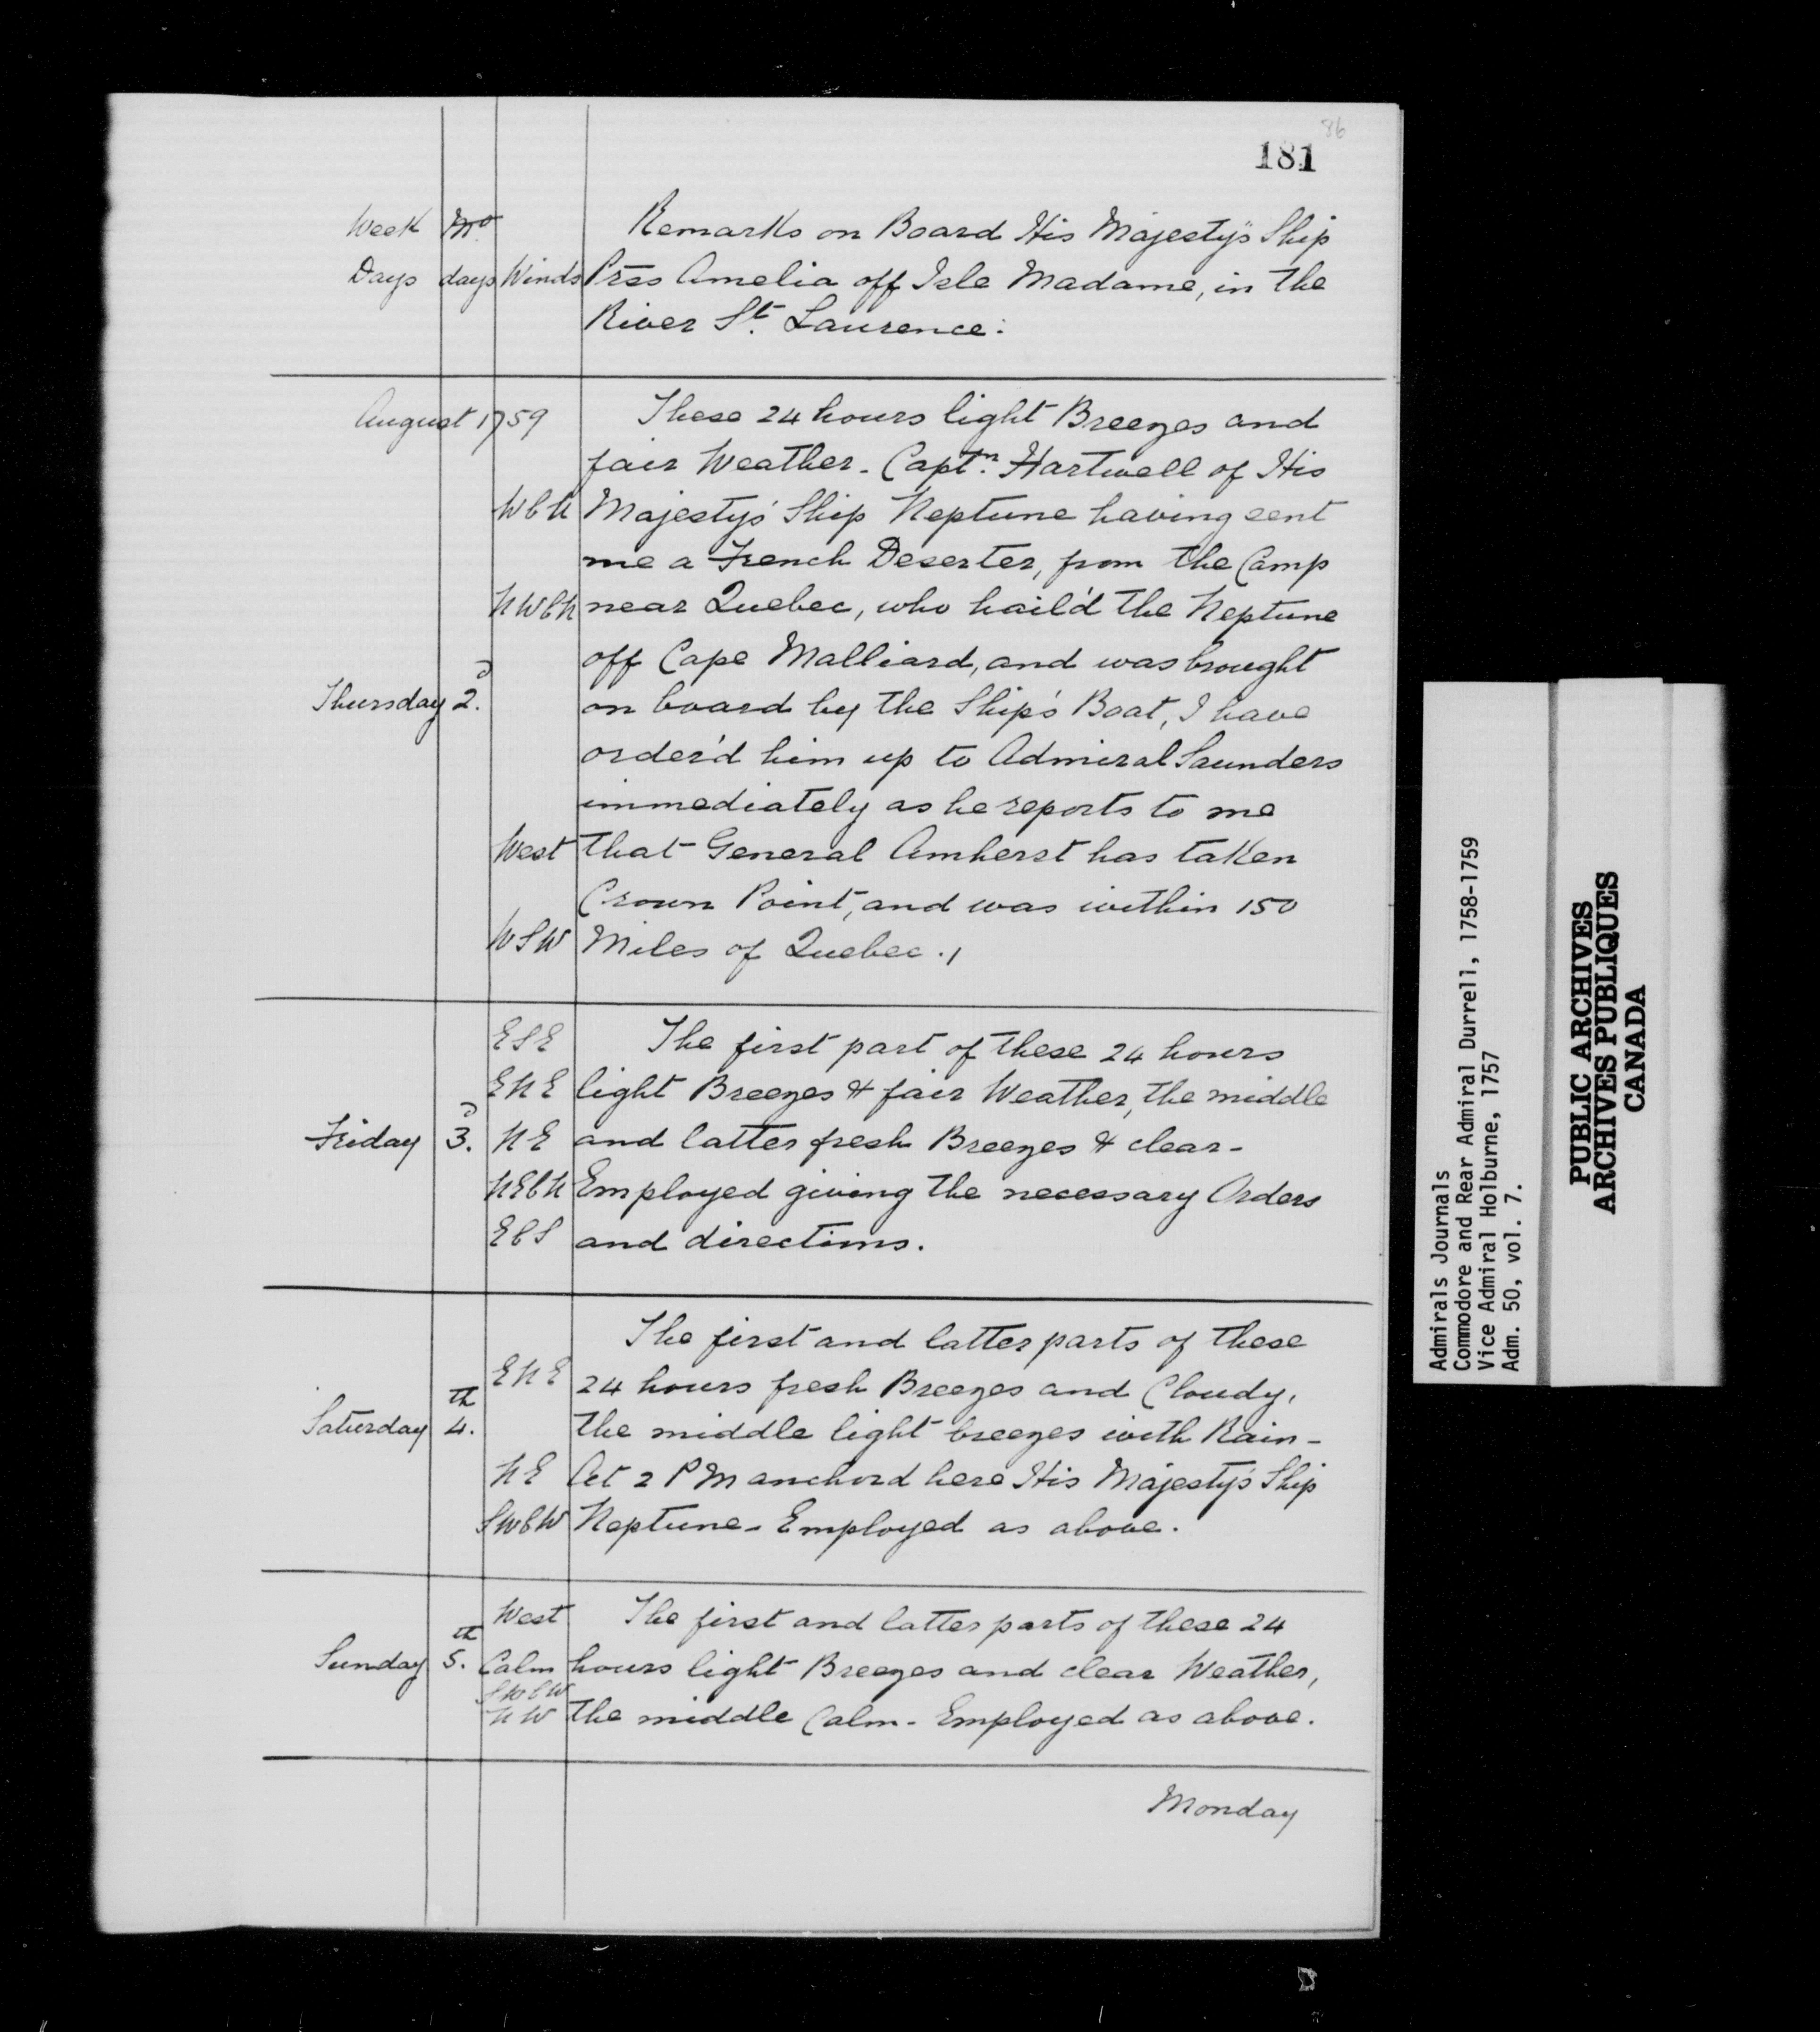 86
181
Week Mo. Remarks on Board His Majesty's Ship
Days days Winds Prss Amelia off Isle Madame, in the
River St. Laurence:
August 1759 These 24 hours light Breezes and
fair Weather - Captn. Hartwell of His
WbN Majesty's Ship Neptune having sent
me a French Deserter, from the Camp
NWbN near Quebec, who hail'd the Neptune
off Cape Malliard, and was brought
Thursday 2d. on board by the Ship's Boat, I have
order'd him up to Admiral Saunders
immediately as he reports to me
West that General Amherst has taken
Crown Point, and was within 150
WSW Miles of Quebec ./
ESE The first part of these 24 hours
ENE light Breezes & fair Weather, the middle
Friday 3d. NE and latter fresh Breezes & clear -
NEbN Employed giving the necessary Orders
EbS and directions.
The first and latter parts of these
ENE 24 hours fresh Breezes and Cloudy,
Saturday 4th. the middle light breezes with Rain -
NE At 2 PM anchord here His Majesty's Ship
SWbW Neptune - Employed as above.
West The first and latter parts of these 24
Sunday 5th. Calm hours light Breezes and clear Weather,
SWbW
NW the middle Calm - Employed as above.
Monday
Admirals Journals
Commodore and Rear Admiral Durrell, 1758-1759
Vice Admiral Holburne, 1757
Adm. 50, vol. 7.
PUBLIC ARCHIVES
ARCHIVES PUBLIQUES
CANADA